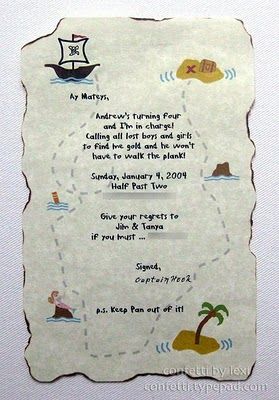 Ay Mateys,
Andrew's turning four
and I'm in charge!
Calling all lost boys and girls
to find me gold and he won't
have to walk the plank!
Sunday, January 4, 2004
Half Past Two
Give your regrets to
Jim & Tanya
if you must ...
Signed,
Captain Hook
p.s. Keep Pan out of it!
confetti by lexi
confetti.typepad.com